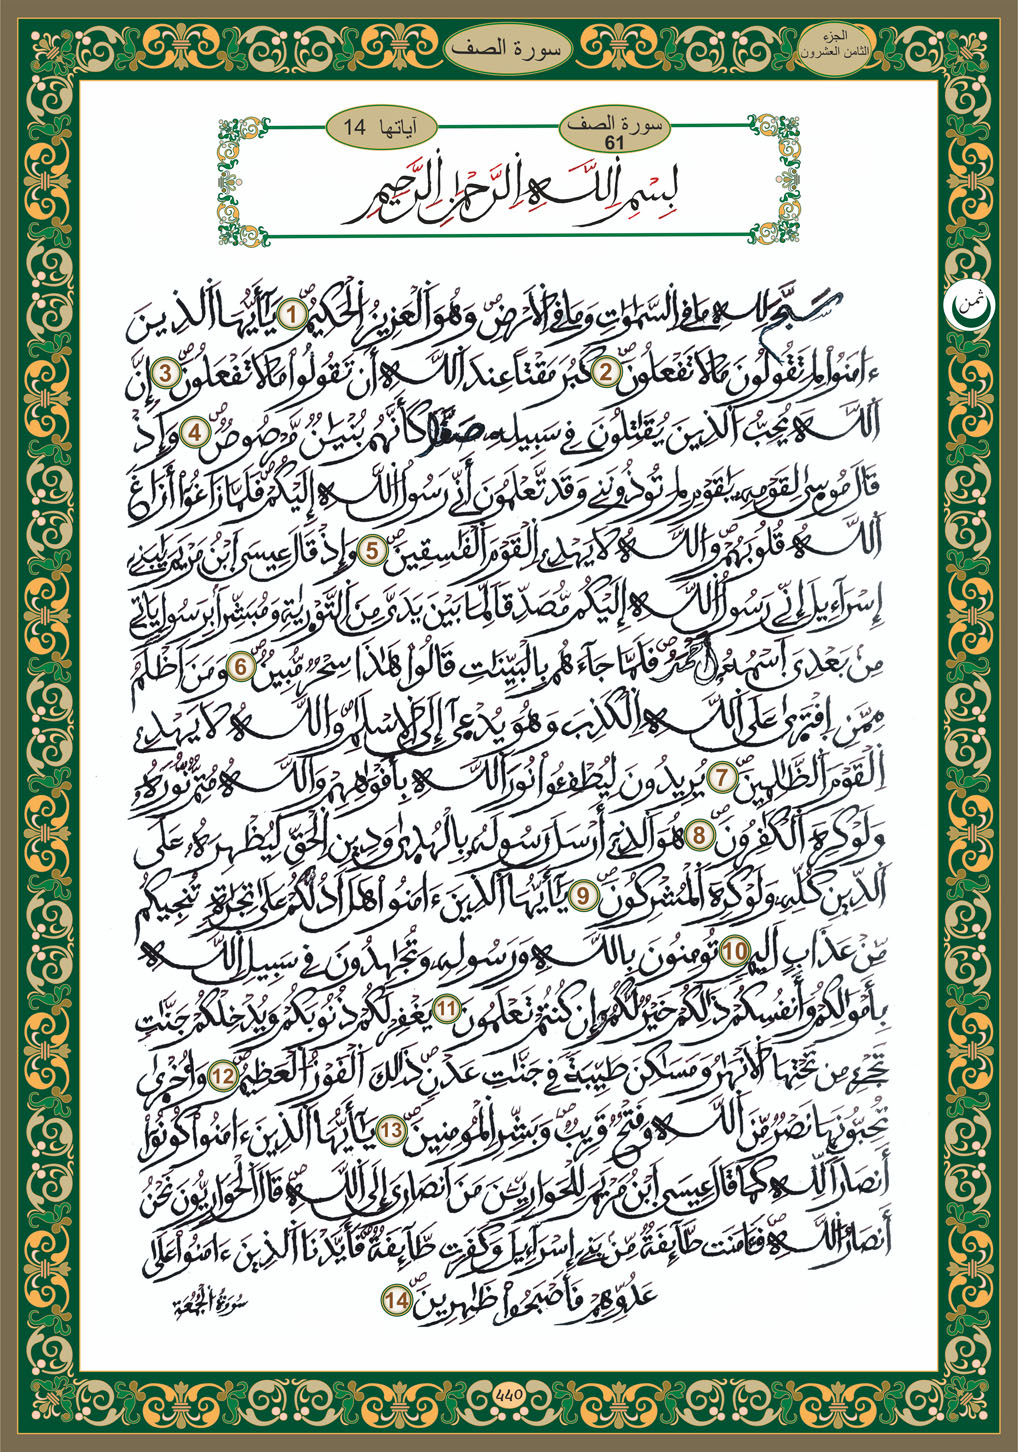 سورة الصف
الجزء
الثامن العشرون
سورة الصف
61
آياتها 14
بِسْمِ اِللَّهِ اِلرَّحْمَٰنِ اِلرَّحِيمِ
ثمن
سَبَّحَ لِلهِ مَا فِے اِلسَّمَٰوَٰتِ وَمَا فِے اِلَارْضِ وَهُوَ اَلْعَزِيزُ اُلْحَكِيمُ 1 يَٰٓأَيُّهَا اَلذِينَ
ءَامَنُواْ لِمَ تَقُولُونَ مَا لَا تَفْعَلُونَ 2 كَبُرَ مَقْتاً عِندَ اَللَّهِ أَن تَقُولُواْ مَا لَا تَفْعَلُونَ 3 إِنَّ
اَللَّهَ يُحِبُّ اُلذِينَ يُقَٰتِلُونَ فِے سَبِيلِهِۦ صَفّاً كَأَنَّهُم بُنْيَٰنٌ مَّرْصُوصٌ 4 وَإِذْ
قَالَ مُوسَىٰ لِقَوْمِهِۦ يَٰقَوْمِ لِمَ تُوذُونَنِے وَقَد تَّعْلَمُونَ أَنِّے رَسُولُ اُللَّهِ إِلَيْكُمْ فَلَمَّا زَاغُوٓاْ أَزَاغَ
اَللَّهُ قُلُوبَهُمْ وَاللَّهُ لَا يَهْدِے اِلْقَوْمَ اَلْفَٰسِقِينَ 5 وَإِذْ قَالَ عِيسَى اَبْنُ مَرْيَمَ يَٰبَنِےٓ
إِسْرَآءِيلَ إِنِّے رَسُولُ اُللَّهِ إِلَيْكُم مُّصَدِّقاً لِّمَا بَيْنَ يَدَيَّ مِنَ اَلتَّوْرَىٰةِ وَمُبَشِّراً بِرَسُولٍ يَاتِے
مِنۢ بَعْدِيَ اَسْمُهُۥٓ أَحْمَدُ فَلَمَّا جَآءَهُم بِالْبَيِّنَٰتِ قَالُواْ هَٰذَا سِحْرٌ مُّبِينٌ 6 وَمَنَ اَظْلَمُ
مِمَّنِ اِفْتَرَىٰ عَلَى اَللَّهِ اِلْكَذِبَ وَهُوَ يُدْعَىٰٓ إِلَى اَلِاسْلَٰمِ وَاللَّهُ لَا يَهْدِے
اِلْقَوْمَ اَلظَّٰلِمِينَ 7 يُرِيدُونَ لِيُطْفِـُٔواْ نُورَ اَللَّهِ بِأَفْوَٰهِهِمْ وَاللَّهُ مُتِمٌّ نُورَهُۥ
وَلَوْ كَرِهَ اَلْكَٰفِرُونَ 8 هُوَ اَلذِےٓ أَرْسَلَ رَسُولَهُۥ بِالْهُدَىٰ وَدِينِ اِلْحَقِّ لِيُظْهِرَهُۥ عَلَى
اَلدِّينِ كُلِّهِۦ وَلَوْ كَرِهَ اَلْمُشْرِكُونَ 9 يَٰٓأَيُّهَا اَلذِينَ ءَامَنُواْ هَلَ اَدُلُّكُمْ عَلَىٰ تِجَٰرَةٍ تُنجِيكُم
مِّنْ عَذَابٍ اَلِيمٍ 10 تُومِنُونَ بِاللَّهِ وَرَسُولِهِۦ وَتُجَٰهِدُونَ فِے سَبِيلِ اِللَّهِ
بِأَمْوَٰلِكُمْ وَأَنفُسِكُمْ ذَٰلِكُمْ خَيْرٌ لَّكُمُۥٓ إِن كُنتُمْ تَعْلَمُونَ 11 يَغْفِرْ لَكُمْ ذُنُوبَكُمْ وَيُدْخِلْكُمْ جَنَّٰتٍ
تَجْرِے مِن تَحْتِهَا اَلَانْهَٰرُ وَمَسَٰكِنَ طَيِّبَةً فِے جَنَّٰتِ عَدْنٍ ذَٰلِكَ اَلْفَوْزُ اُلْعَظِيمُ 12 وَأُخْرَىٰ
تُحِبُّونَهَا نَصْرٌ مِّنَ اَللَّهِ وَفَتْحٌ قَرِيبٌ وَبَشِّرِ اِلْمُومِنِينَ 13 يَٰٓأَيُّهَا اَلذِينَ ءَامَنُواْ كُونُوٓاْ
أَنصَاراً لِّلهِ كَمَا قَالَ عِيسَى اَبْنُ مَرْيَمَ لِلْحَوَارِيِّـۧنَ مَنَ اَنصَارِيَ إِلَى اَللَّهِ قَالَ اَلْحَوَارِيُّونَ نَحْنُ
أَنصَارُ اُللَّهِ فَـَٔامَنَت طَّآئِفَةٌ مِّنۢ بَنِےٓ إِسْرَآءِيلَ وَكَفَرَت طَّآئِفَةٌ فَأَيَّدْنَا اَلذِينَ ءَامَنُواْ عَلَىٰ
عَدُوِّهِمْ فَأَصْبَحُواْ ظَٰهِرِينَ 14
سُورَةُ اُلْجُمُعَةِ
440